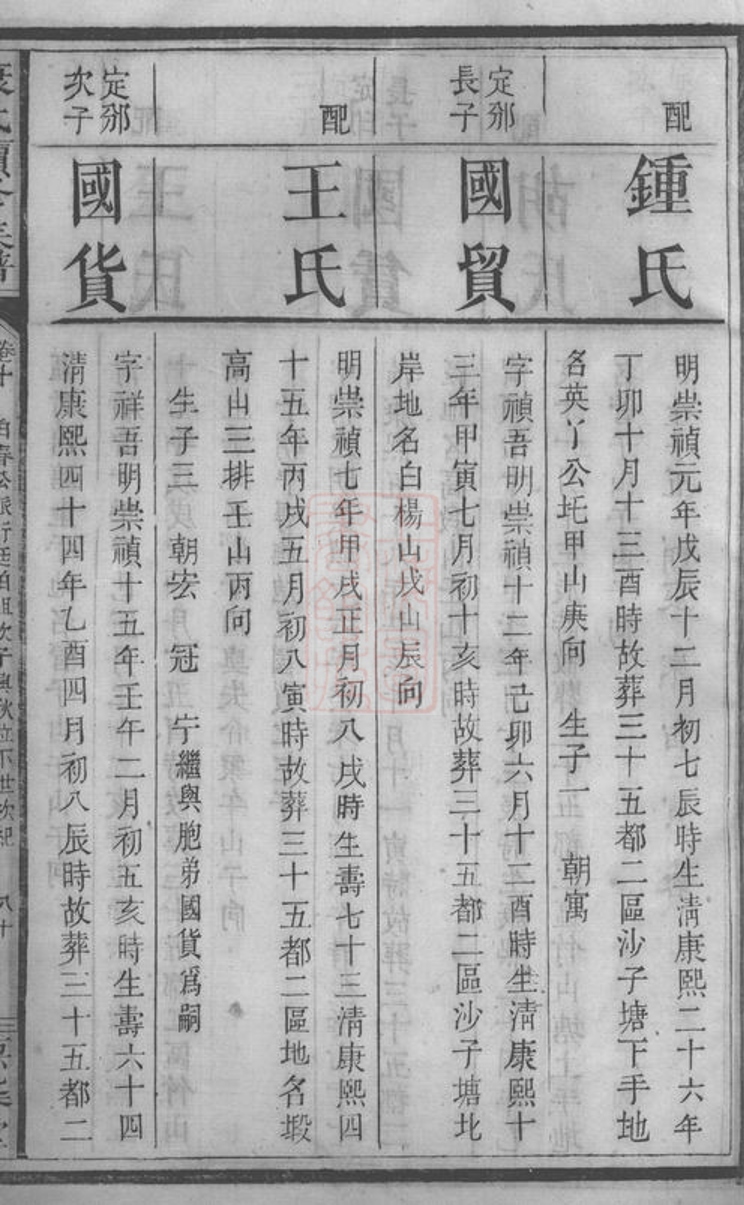 配
鍾氏
明崇禎元年戊辰十二月初七辰時生淸康熙二十六年
丁卯十月十三酉時故葬三十五都二區沙子塘下手地
名英丫公圫甲山庚向 生子一 朝寓
定邠
長子
國貿
字禎吾明崇禎十二年己卯六月十二酉時生淸康熙十
三年甲寅七月初十亥時故葬三十五都二區沙子塘北
岸地名白楊山戌山辰向
配
王氏
明崇禎七年甲戌正月初八戌時生壽七十三淸康熙四
十五年丙戌五月初八寅時故葬三十五都二區地名塅
高山三排壬山丙向
生子三 朝宏 冠 宁繼與胞弟國貨爲嗣
定邠
次子
國貨
字祥吾明崇禎十五年壬午二月初五亥時生壽六十四
淸康熙四十四年乙酉四月初八辰時故葬三十五都二
氏 族譜
卷十 派行廷伯祖次子與秋位下世次紀 八十